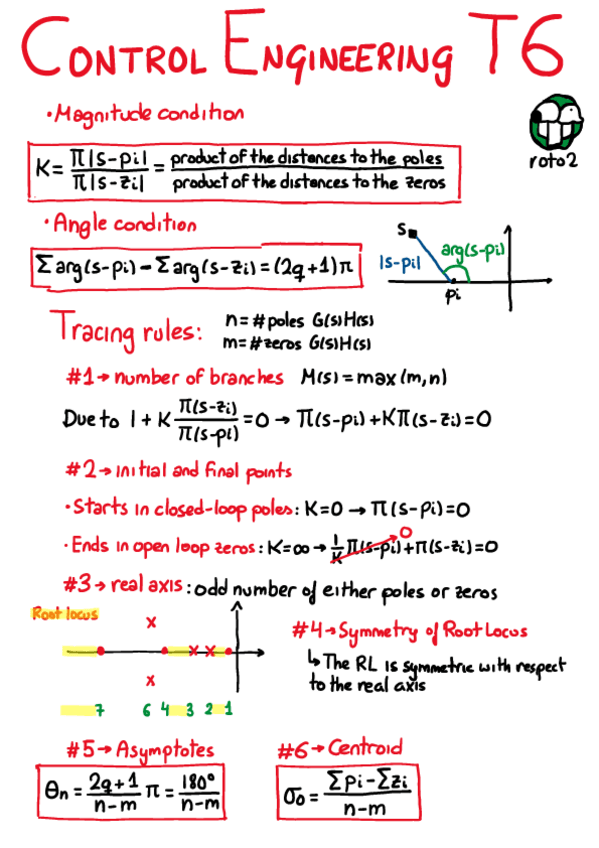 CONTROL ENGINEERING T6
• Magnitude condition
K = π|s-pi| / π|s-zi| = product of the distances to the poles / product of the distances to the zeros
roto2
• Angle condition
Σarg(s-pi) - Σarg(s-zi) = (2q+1)π
S
|s-pi|
arg(s-pi)
pi
Tracing rules:
n = # poles G(s)H(s)
m = # zeros G(s)H(s)
#1 → number of branches M(s) = max(m,n)
Due to 1 + K π(s-zi) / π(s-pi) = 0 → π(s-pi) + Kπ(s-zi) = 0
#2 → initial and final points
• Starts in closed-loop poles: K=0 → π(s-pi)=0
• Ends in open loop zeros: K=∞ → 1/K π(s-pi) + π(s-zi) = 0
0
#3 → real axis: odd number of either poles or zeros
Root locus
7 6 4 3 2 1
#4 → Symmetry of Root Locus
↳ The RL is symmetric with respect
to the real axis
#5 → Asymptotes
θn = 2q+1 / n-m π = 180° / n-m
#6 → Centroid
σ0 = Σpi - Σzi / n-m